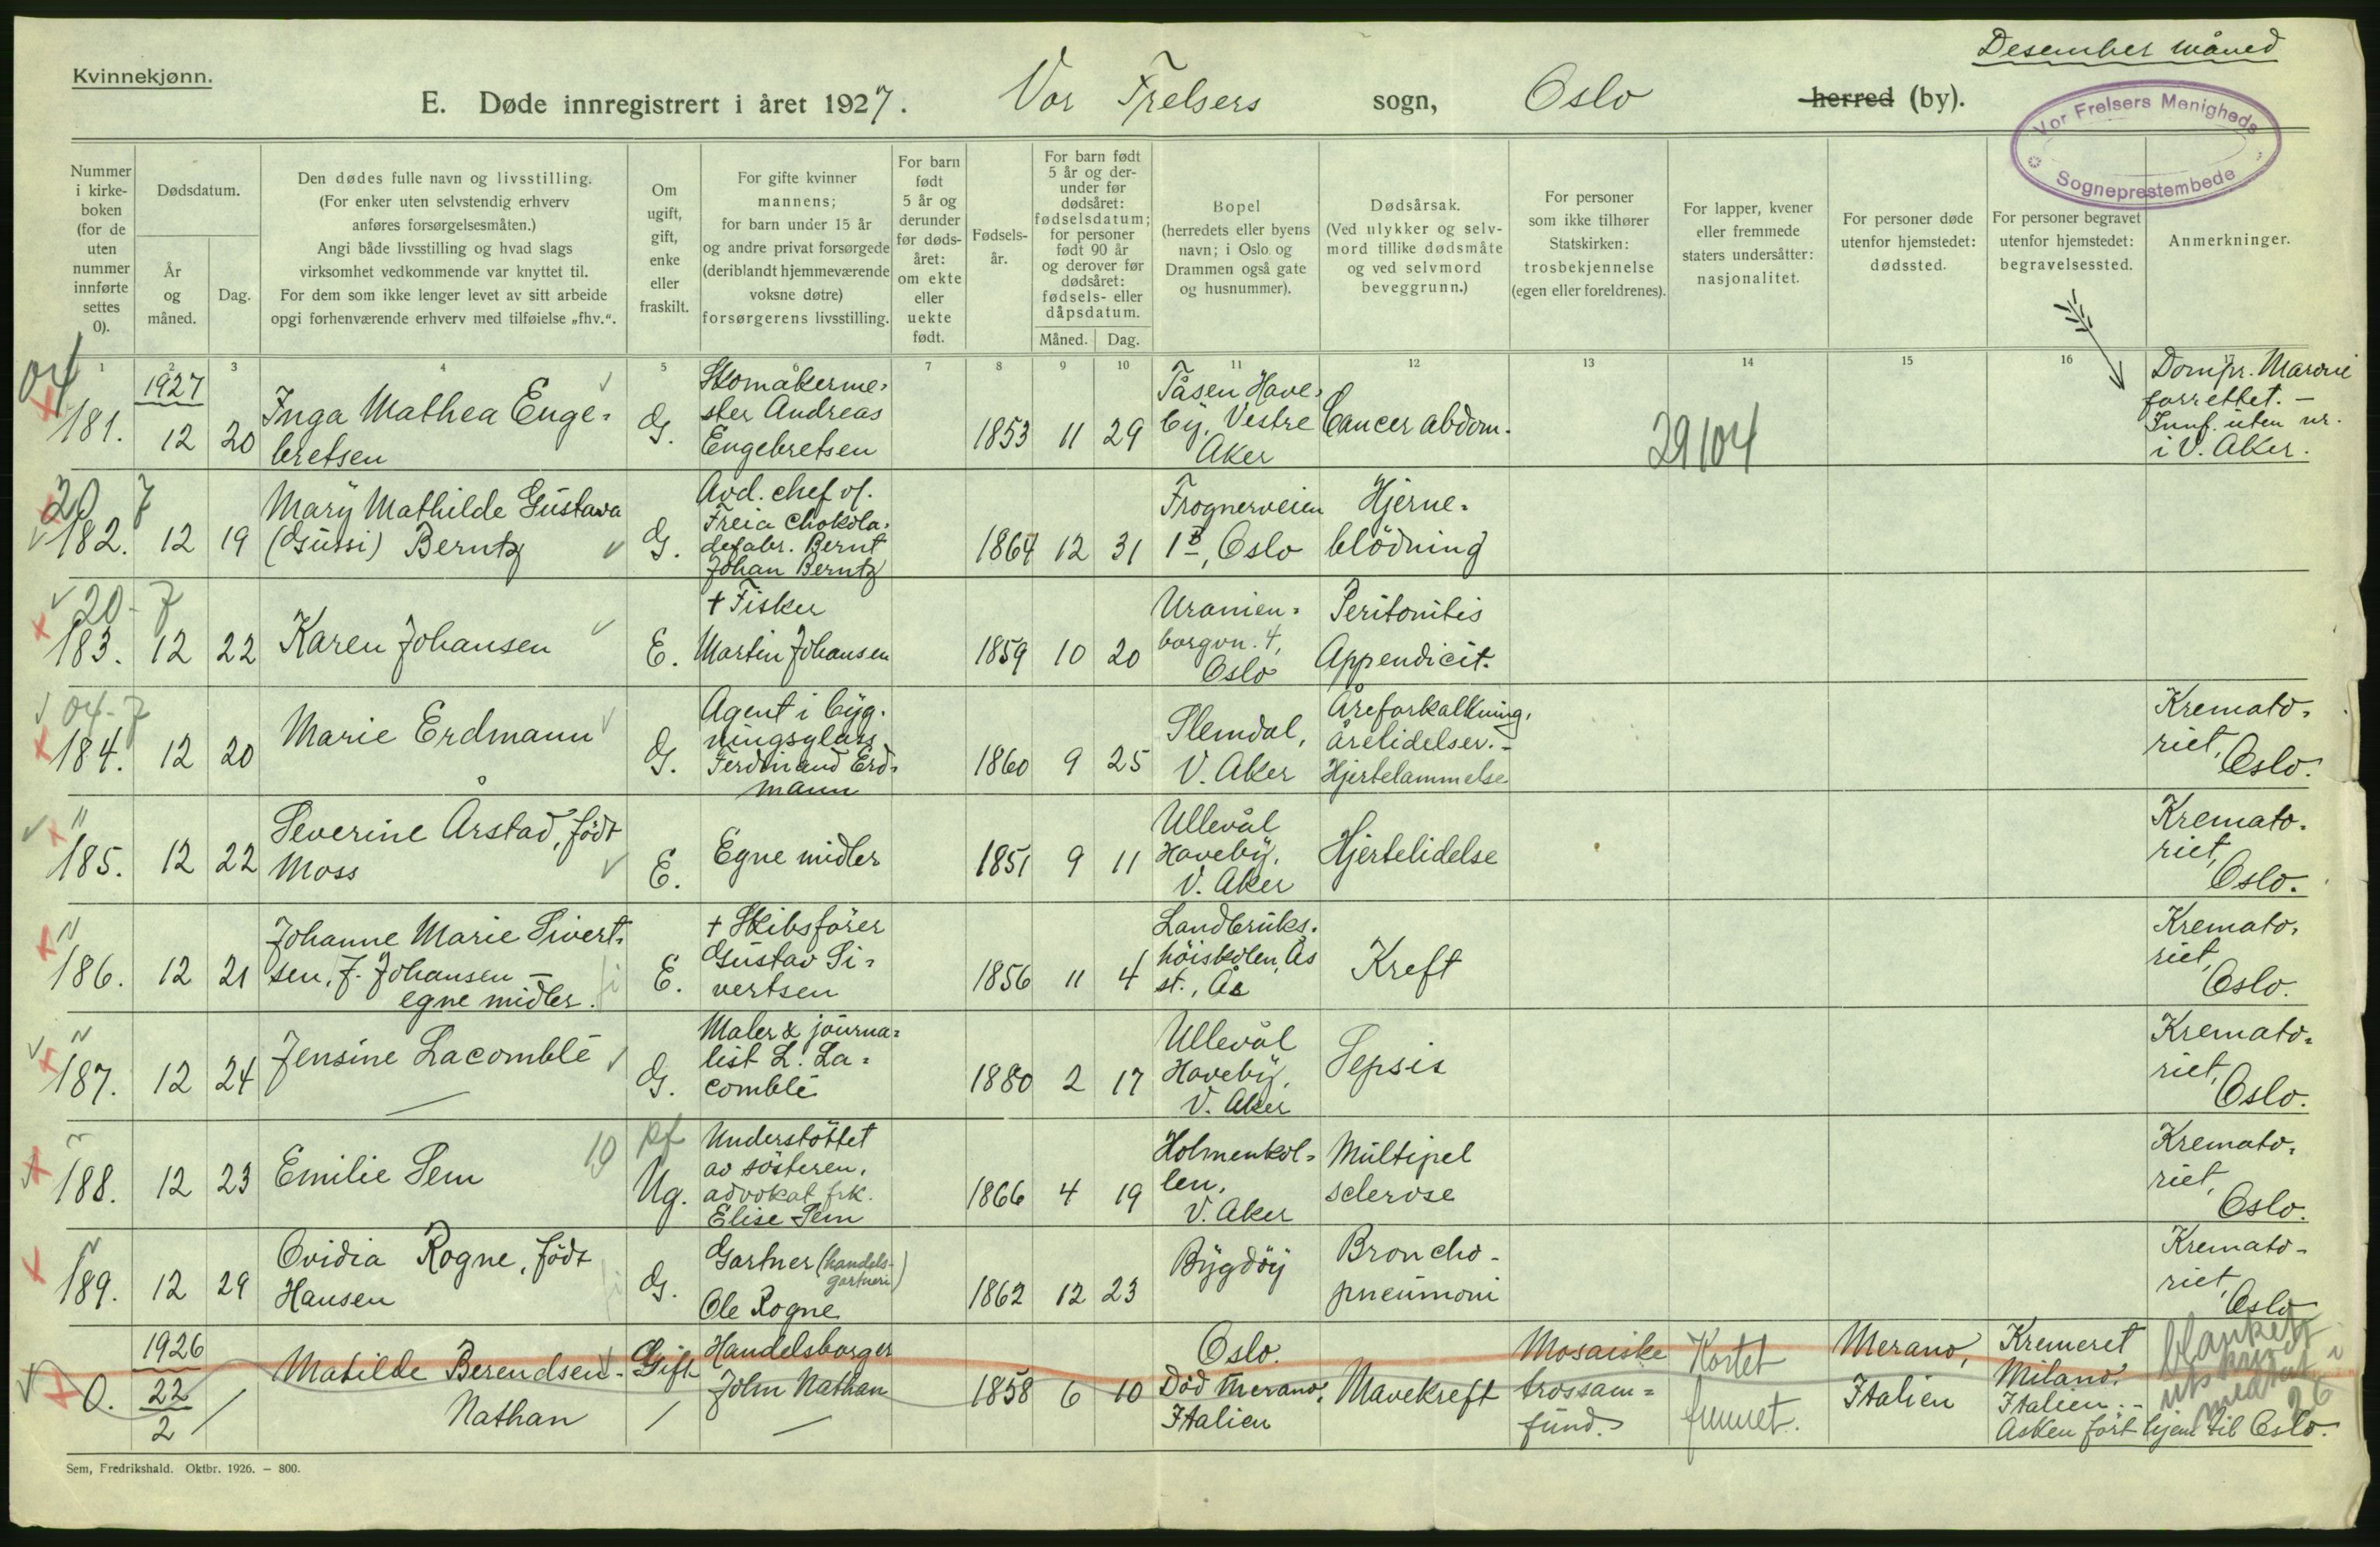 Desember måned
Kvinnekjønn.
E. Døde innregistrert i året 1927. Vor Frelsers sogn, Oslo herred (by).
Vor Frelsers Menigheds
Sogneprestembede
Nummer i kirke-boken (for de uten nummer innførte settes 0).
Dødsdatum.
År og måned.
Dag.
Den dødes fulle navn og livsstilling.
(For enker uten selvstendig erhverv
anføres forsørgelsesmåten.)
Angi både livsstilling og hvad slags
virksomhet vedkommende var knyttet til.
For dem som ikke lenger levet av sitt arbeide
opgi forhenværende erhverv med tilføielse „fhv.“.
Om ugift, gift, enke eller fraskilt.
For gifte kvinner
mannens;
for barn under 15 år
og andre privat forsørgede
(deriblandt hjemmeværende
voksne døtre)
forsørgerens livsstilling.
For barn født 5 år og derunder før døds-året: om ekte eller uekte født.
Fødsels-år.
For barn født
5 år og der-
under før
dødsåret:
fødselsdatum;
for personer
født 90 år
og derover før
dødsåret:
fødsels- eller
dåpsdatum.
Måned. Dag.
Bopel
(herredets eller byens
navn; i Oslo og
Drammen også gate
og husnummer).
Dødsårsak.
(Ved ulykker og selv-
mord tillike dødsmåte
og ved selvmord
beveggrunn.)
For personer
som ikke tilhører
Statskirken:
trosbekjennelse
(egen eller foreldrenes).
For lapper, kvener
eller fremmede
staters undersåtter:
nasjonalitet.
For personer døde
utenfor hjemstedet:
dødssted.
For personer begravet
utenfor hjemstedet:
begravelsessted.
Anmerkninger.
1 2 3 4 5 6 7 8 9 10 11 12 13 14 15 16 17
04
1927
181. 12 20 Inga Mathea Enge-
bretsen
G.
Skomakerme-
ster Andreas
Engebretsen
1853 11 29
Tåsen Have-
by, Vestre
Aker
Cancer abdom.
29104
Dompr. Maroni
forrettet. -
Innf. uten nr.
i V. Aker.
20 7
182. 12 19 Mary Mathilde Gustava
(Gussi) Berntz
G.
Avd. chef v/.
Freia Chokola-
defabr. Bernt
Johan Berntz
1864 12 31
Frognerveien
1B, Oslo
Hjerne-
blödning
20-7
183. 12 22 Karen Johansen
E.
+ Fisker
Martin Johansen
1859 10 20
Uranien-
borgvn. 4,
Oslo
Peritonitis
Appendicit.
04-7
184. 12 20 Marie Erdmann
G.
Agent i byg-
ningsglass
Ferdinand Erd-
mann
1860 9 25
Slemdal,
V. Aker
Åreforkalkning,
årelidelser. -
Hjertelammelse
Kremato-
riet, Oslo.
"
185. 12 22 Severine Årstad, födt
Moss
E.
Egne midler
1851 9 11
Ullevål
Haveby,
V. Aker
Hjertelidelse
Kremato-
riet,
Oslo.
"
186. 12 21 Johanne Marie Sivert-
sen, f. Johansen -
egne midler.
E.
+ Skibsförer
Gustav Si-
vertsen
1856 11 4
Landbruks-
höiskolen, Ås
st., Ås
Kreft
Kremato-
riet,
Oslo.
"
187. 12 24 Jensine Lacomblé
G.
Maler & journa-
list L. La-
comblé
1880 2 17
Ullevål
Haveby,
V. Aker
Sepsis
Kremato-
riet,
Oslo.
"
188. 12 23 Emilie Sem
19 pf
Ug.
Understöttet
av sösteren,
advokat frk.
Elise Sem
1866 4 19
Holmenkol-
len,
V. Aker
Multipel
sclerose
Kremato-
riet,
Oslo.
"
189. 12 29 Ovidia Rogne, födt
Hansen
G.
Gartner (handels-
gartneri)
Ole Rogne
1862 12 23
Bygdöy
Broncho-
pneumoni
Kremato-
riet,
Oslo
1926
0. 22
2
Matilde Berendsen-
Nathan
Gift
Handelsborger
John Nathan
1858 6 10
Oslo.
Död Merano,
Italien
Mavekreft
Mosaiske
trossam-
fund.
Kortet
funnet.
Merano,
Italien
Kremeret
Milano,
Italien. -
Asken fört hjem til Oslo.
blankett
utskrevd
medtatt i
26
Sem, Fredrikshald. Oktbr. 1926. — 800.